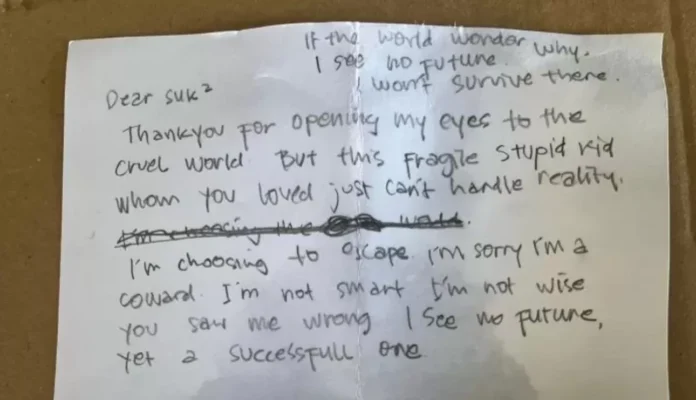 If the world wonder why.
I see no future.
I won't survive there.
Dear suk²
Thankyou for opening my eyes to the
cruel world. But this fragile stupid kid
whom you loved just can't handle reality.
I'm choosing the
I'm choosing to escape. I'm sorry I'm a
coward. I'm not smart I'm not wise
you saw me wrong I see no future,
yet a successfull one